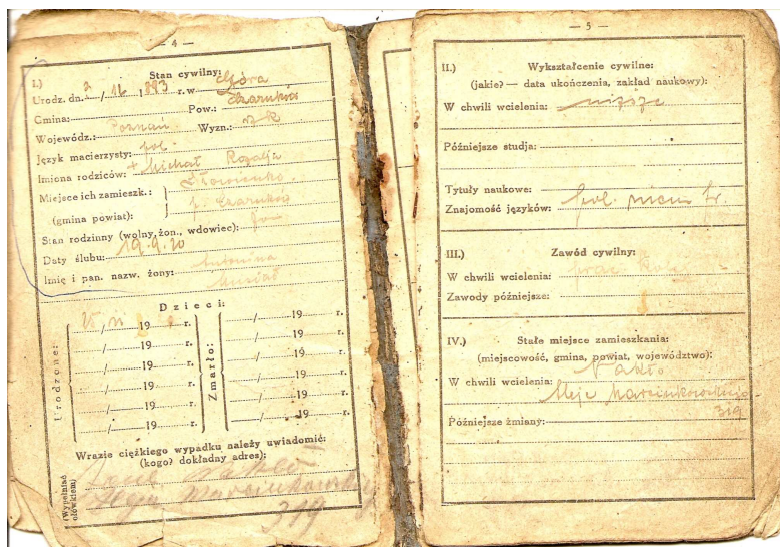 — 4 —
I.) Stan cywilny:
Urodz. dn. 2 / 16 , 893 r. w Góra
Gmina: Pow.: Czarnków
Wojewódz.: Poznań Wyzn.: rz k
Język macierzysty: pol.
Imiona rodziców: + Michał Rozalja
Miejsce ich zamieszk.:
(gmina powiat): p. Czarnków
Stan rodzinny (wolny, żon., wdowiec): żon
Daty ślubu: 19.9.20
Imię i pan. nazw. żony: Antonina
Musiał
Dzieci:
Urodzone:
Zmarło:
/ 19 r. / 19 r.
/ 19 r. / 19 r.
/ 19 r. / 19 r.
/ 19 r. / 19 r.
/ 19 r. / 19 r.
/ 19 r. / 19 r.
Wrazie ciężkiego wypadku należy uwiadomić:
(kogo? dokładny adres):
(Wypełniać ołówkiem)
żona Nakło
Aleja Marcinkowskiego
319
— 5 —
II.) Wykształcenie cywilne:
(jakie? — data ukończenia, zakład naukowy):
W chwili wcielenia: niższe
Późniejsze studja:
Tytuły naukowe:
Znajomość języków: pol. niem fr.
III.) Zawód cywilny:
W chwili wcielenia: prac.
Zawody późniejsze:
IV.) Stałe miejsce zamieszkania:
(miejscowość, gmina, powiat, województwo):
W chwili wcielenia: Nakło
Aleje Marcinkowskiego
319
Późniejsze żmiany: